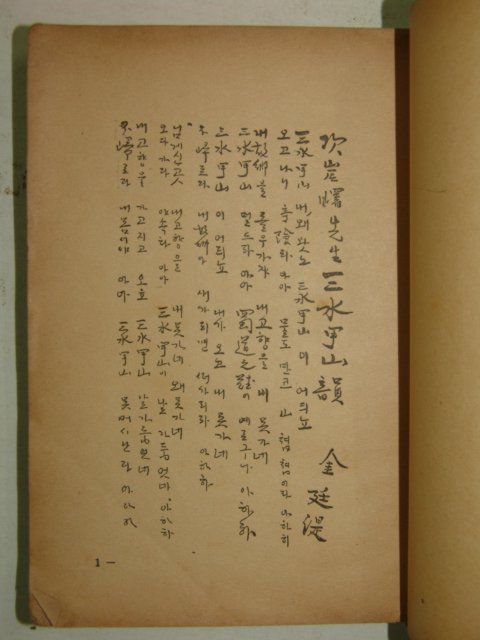 次岸曙先生三水甲山韻
金廷湜
三水甲山 내 왜 왓노 三水甲山이 어듸뇨
오고나니 奇險타 아하 물도 만코 山疊疊이라 아하하
내 故鄕을 돌우가자 내 고향을 내 못가네
三水甲山 멀드라 아하 蜀道之難이 예로구나 아하하
三水甲山이 어듸뇨 내가 오고 내 못가네
不歸로다 내 故鄕아 새가 되면 떠가리라 아하하
님계신곳 내고향을 내 못가네 내 못가네
오다 가다 야속타 아하 三水甲山이 날 가둡엇네 아하하
내고향을 가고지고 오호 三水甲山 날 가둡엇네
不歸로다 내 몸이야 아하 三水甲山 못버서난다 아하하
1 —